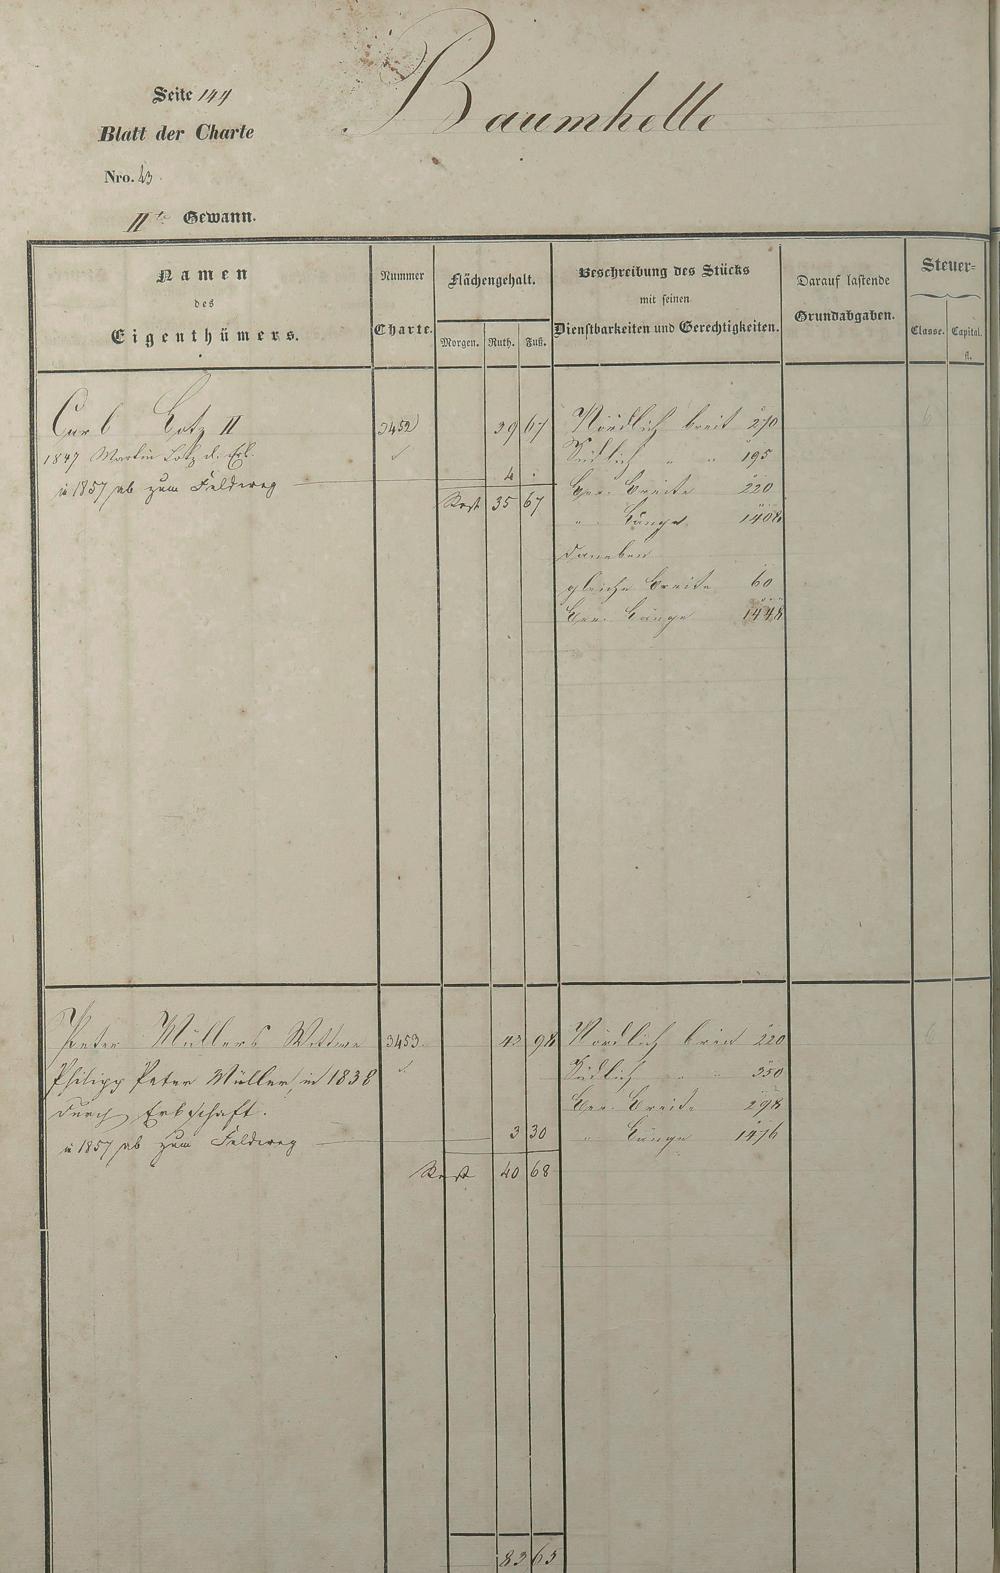 Seite 144
Baumhelle
Blatt der Charte
Nro. 43
IIte Gewann.
Namen
des
Eigenthümers.
Nummer
Charte.
Flächengehalt.
Morgen. Ruth. Fuß.
Beschreibung des Stücks
mit seinen
Dienstbarkeiten und Gerechtigkeiten.
Darauf lastende
Grundabgaben.
Steuer-
Classe. Capital.
fl.
Carl Lotz II 3452 39 67 Nördlich breit 270
1847 Martin Lotz d. Erb. Südlich " " 195
in 1857 ab zum Feldweg 4 . Ger. Breite 220
Rest 35 67 " Länge 1408
daneben
gleiche Breite 60
Ger. Länge 1448
Peter Müllers Wittwe 3453. 43 98 Nördlich breit 220
Philipp Peter Müller, in 1838 Südlich " " 350
durch Erbschaft. Ger. Breite 298
in 1857 ab zum Feldweg 3 30 " Länge 1476
Rest 40 68
83 65